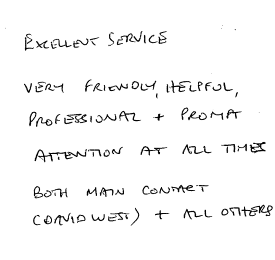 EXCELLENT SERVICE
VERY FRIENDLY, HELPFUL,
PROFESSIONAL + PROMPT
ATTENTION AT ALL TIMES
BOTH MAIN CONTACT
(DAVID WEST) + ALL OTHERS